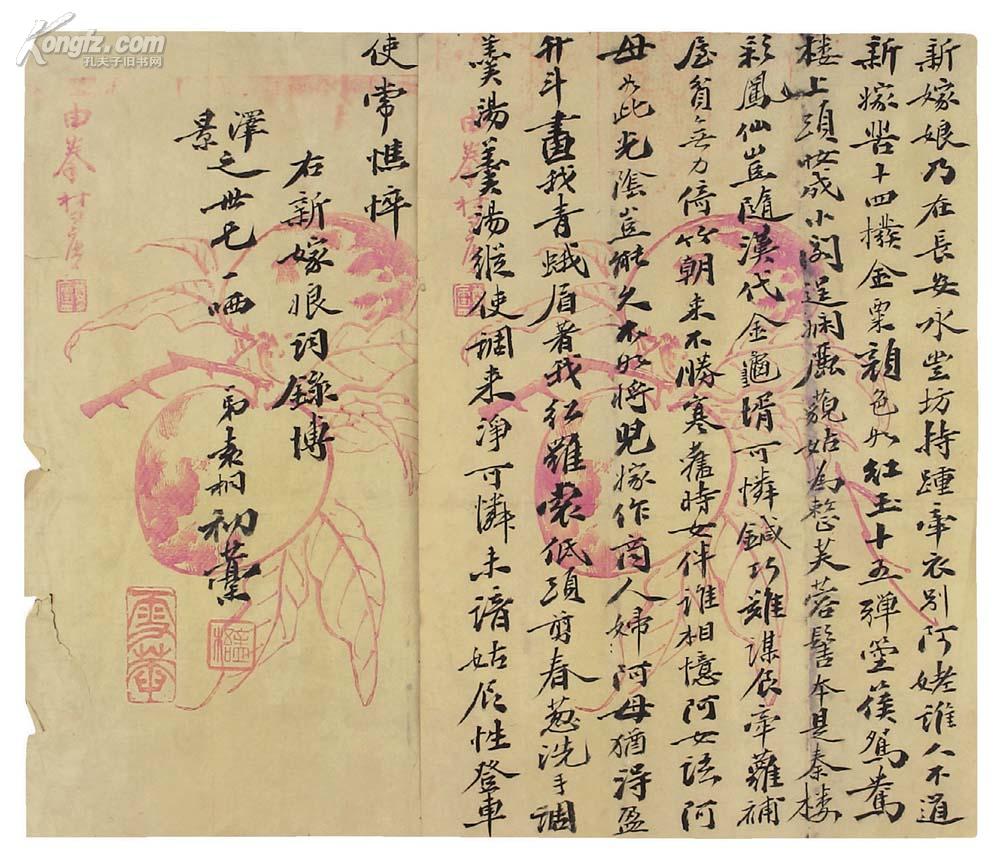 新嫁娘乃在長安永豐坊持踵牽衣別阿姥誰人不道
新嫁苦十四撲金粟顏色如紅玉十五彈箜篌鴛鴦
樓上頭妝成小閣逞嫻雅藐姑為整芙蓉髻本是秦樓
彩鳳仙豈隨漢代金龜壻可憐鍼巧難謀食牽蘿補
屋貧無力倚竹朝来不勝寒舊時女伴誰相憶阿女語阿
母如此光陰豈能久不如將兒嫁作商人婦阿母猶得盈
升斗畫我青蛾眉著我紅羅裳低頭剪春葱洗手調
羹湯羹湯縱使調来淨可憐未諳姑食性登車
使常憔悴
右新嫁娘詞錄博
澤之世兄一哂 弟袁桐初藁
景
由拳村
由拳村
Kongfz.com
孔夫子旧书网